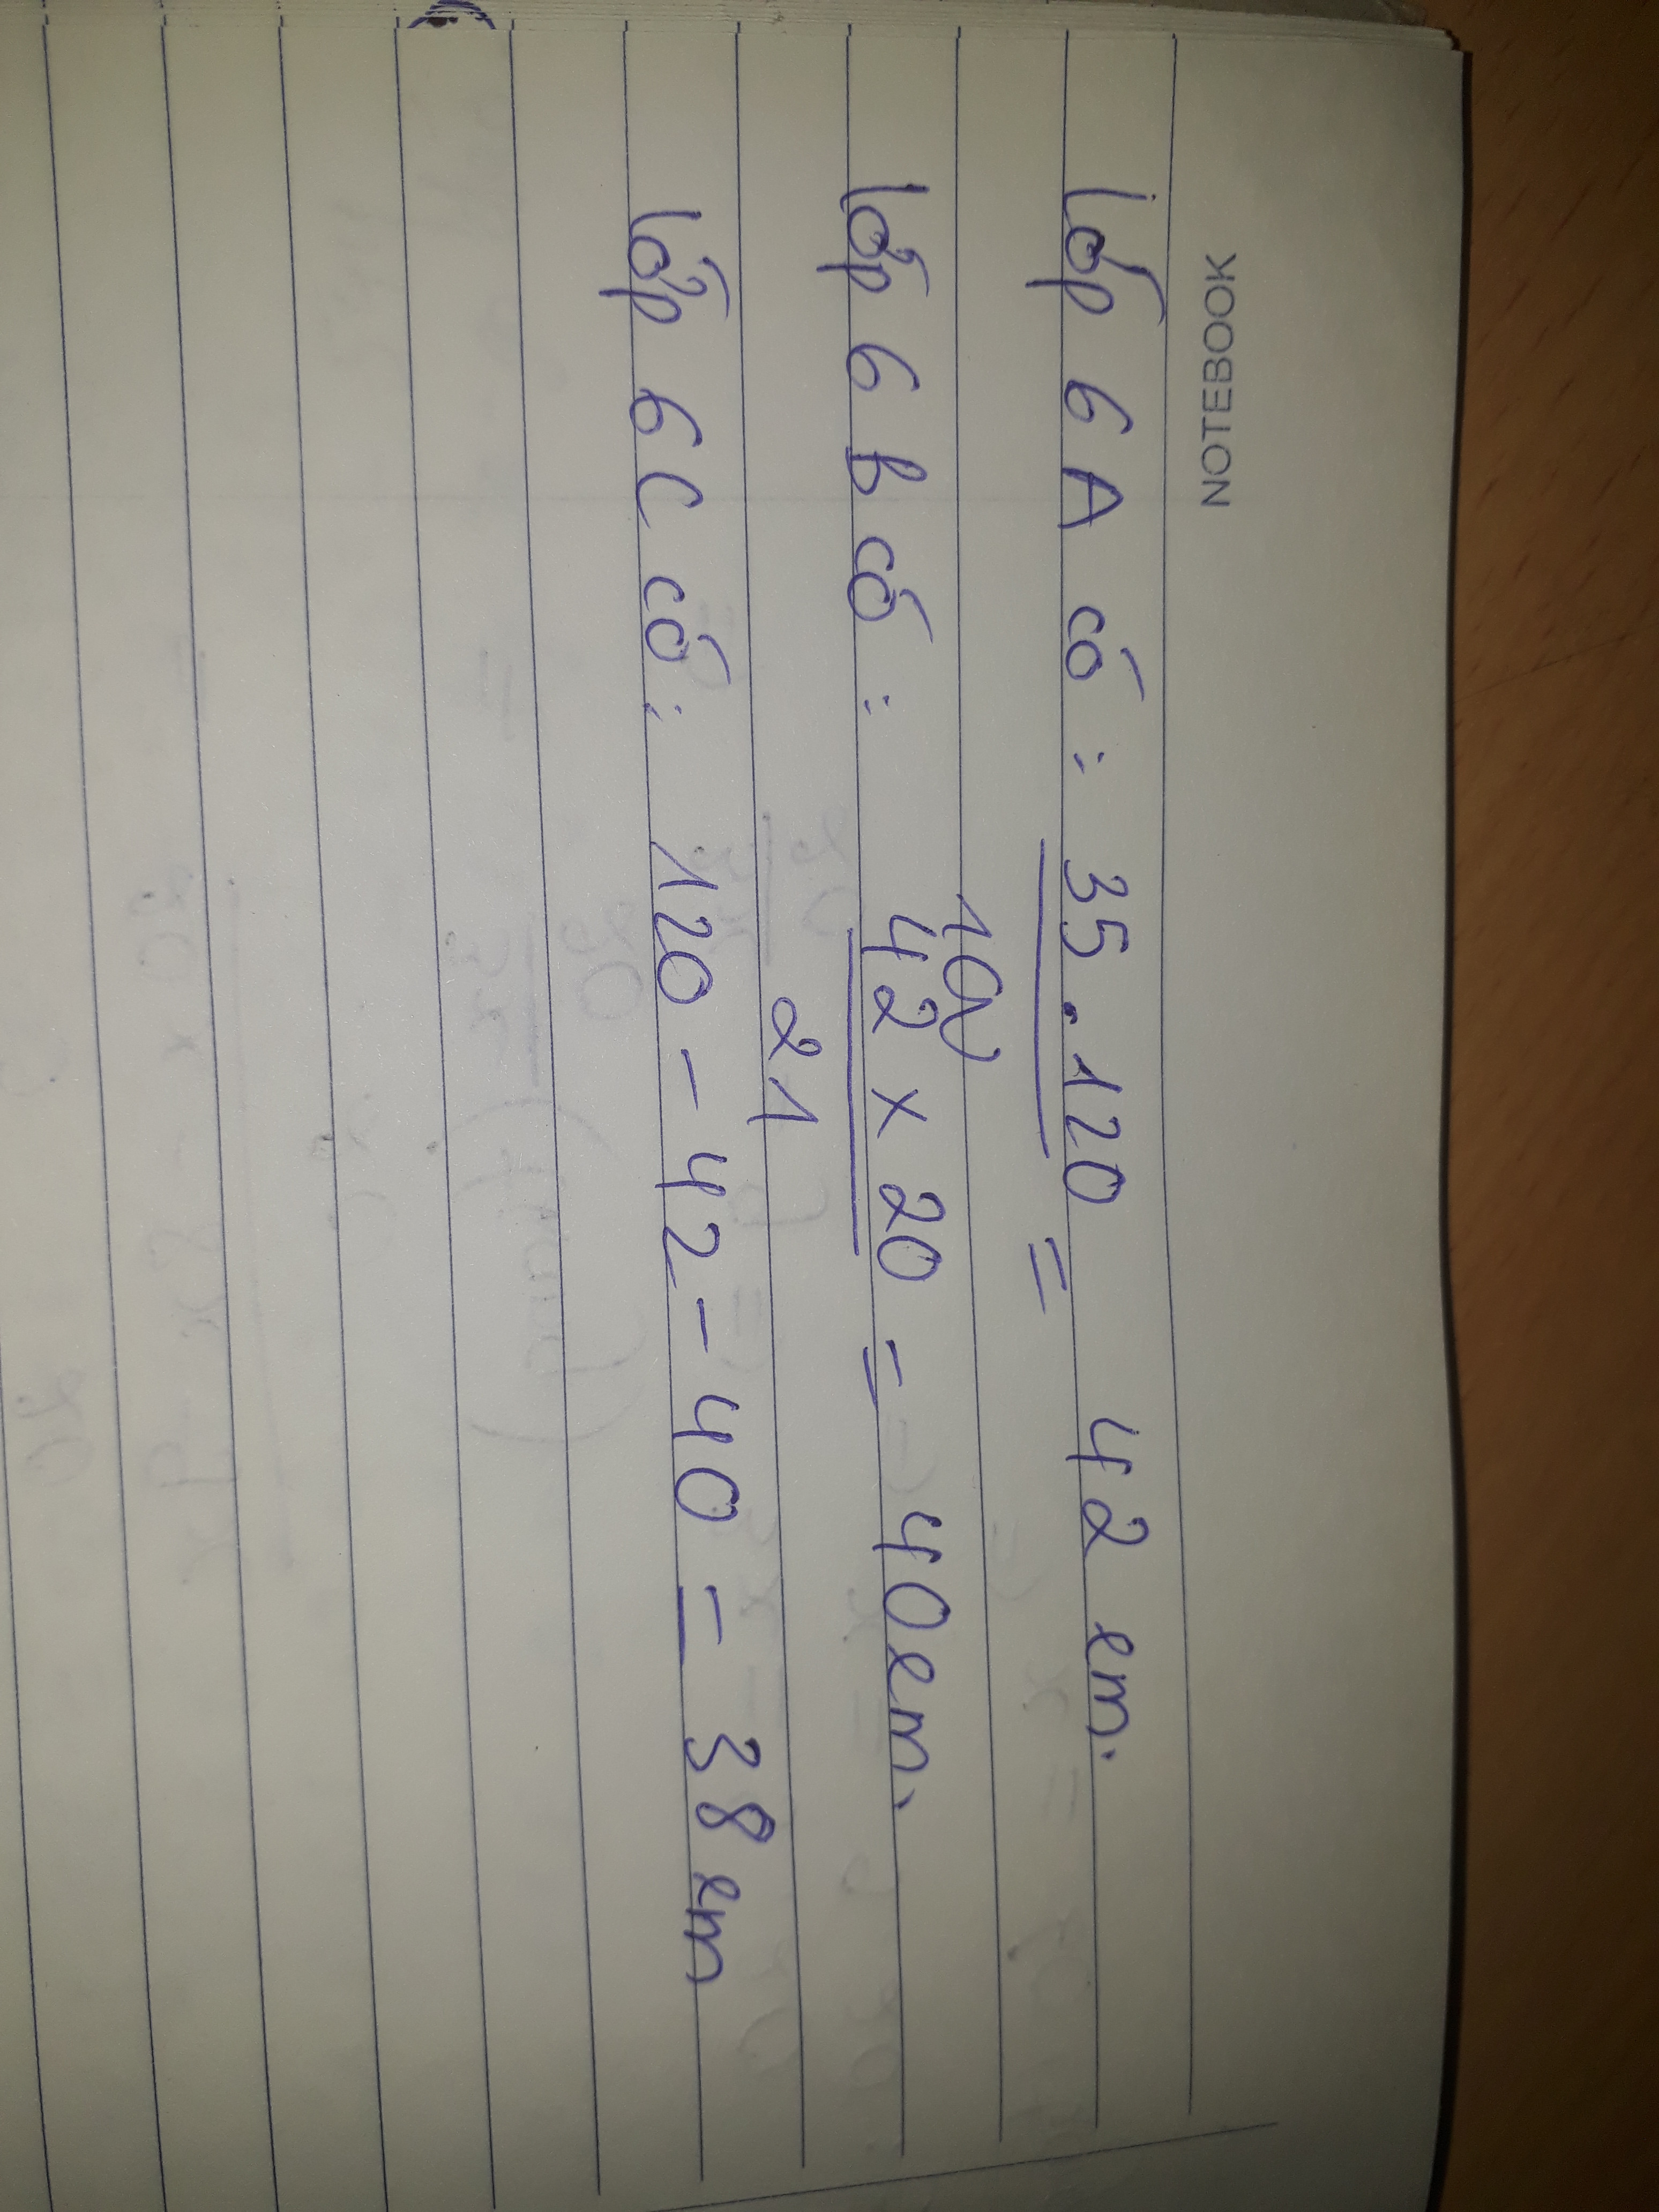 NOTEBOOK
lớp 6A có : 35.120 = 42 em.
100
lớp 6B có : 42 x 20 = 40em.
21
lớp 6C có : 120 - 42 - 40 = 38 em